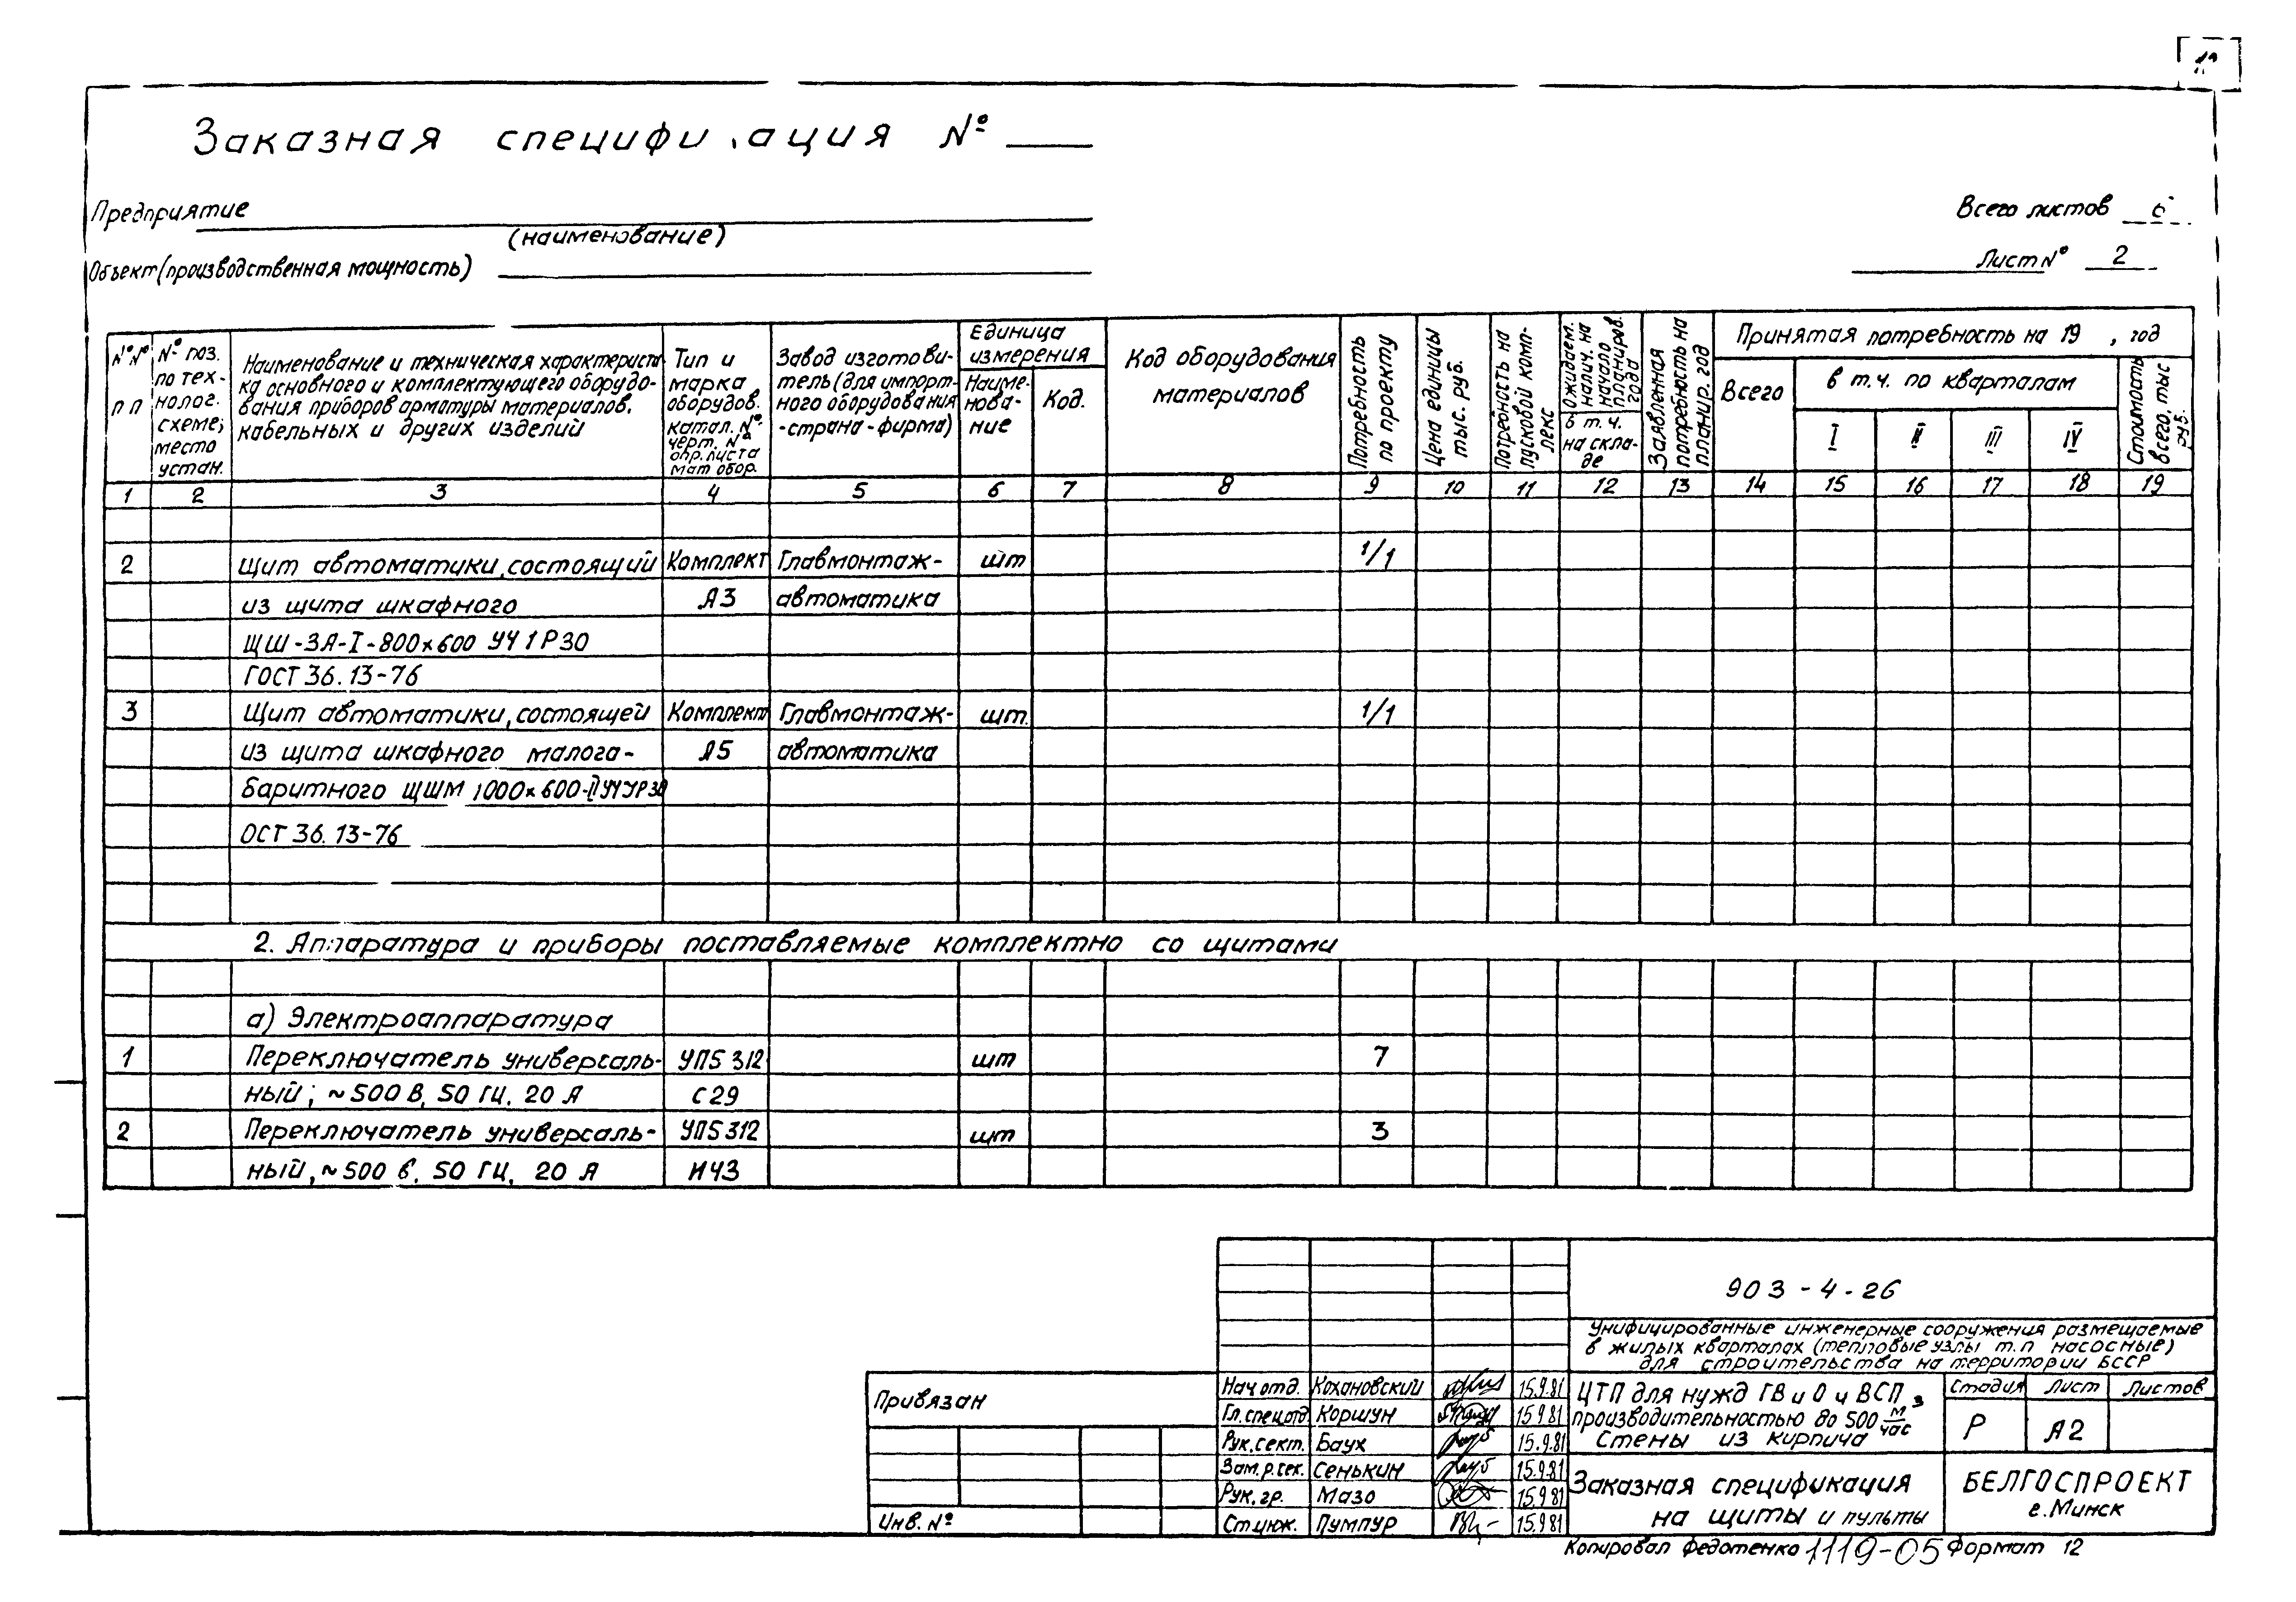 Заказная специфи.ация №
Предприятие
(наименование)
Объект (производственная мощность)
Всего листов
Лист № 2
№№ п п
№ поз. по тех- нолог. схеме, место устан.
Наименование и техническая характеристи
ка основного и комплектующего оборудо-
вания приборов арматуры материалов,
кабельных и других изделий
Тип и марка оборудов. катал. № черт. № опр. листа мат обор.
Завод изготови-
тель (для импорт-
ного оборудования
-страна-фирма)
Единица измерения
Наиме- нова- ние
Код.
Код оборудования материалов
Потребность по проекту
Цена единицы тыс. руб.
Потребность на пусковой комп- лекс
Ожидаем. налич. на начало планиров. года
в т.ч. на скла- де
Заявленная потребность на планир. год
Принятая потребность на 19 , год
Всего
в т.ч. по кварталам
I II III IV
Стоимость всего, тыс руб.
1 2 3 4 5 6 7 8 9 10 11 12 13 14 15 16 17 18 19
2 Щит автоматики, состоящий Комплект Главмонтаж- шт 1/1
из щита шкафного А3 автоматика
ЩШ-ЗА-I-800х600 УЧ 1Р30
ГОСТ 36.13-76
3 Щит автоматики, состоящей Комплект Главмонтаж- шт. 1/1
из щита шкафного малога- А5 автоматика
баритного ЩШМ 1000х600-II
ОСТ 36.13-76
2. Аппаратура и приборы поставляемые комплектно со щитами
а) Электроаппаратура
1 Переключатель универсаль- УП5312 шт 7
ный; ~500 В, 50 ГЦ, 20 А С29
2 Переключатель универсаль- УП5312 шт 3
ный, ~500 в, 50 ГЦ, 20 А И43
903-4-26
Унифицированные инженерные сооружения размещаемые
в жилых кварталах (тепловые узлы т.п насосные)
для строительства на территории БССР
Привязан
Инв. №
Нач отд. Кохановский 15.9.81
Гл. спец отд Коршун 15.9 81
Рук. сект. Баух 15.9.81
Зам. р. сек. Сенькин 15.9.81
Рук. гр. Мазо 15.9 81
Ст инж. Пумпур 15.9 81
ЦТП для нужд ГВ и О и ВСП,
производительностью до 500 м3/час
Стены из кирпича
Стадия Лист Листов
Р А2
Заказная спецификация
на щиты и пульты
БЕЛГОСПРОЕКТ
г. Минск
Копировал Федотенко 1119-05 Формат 12